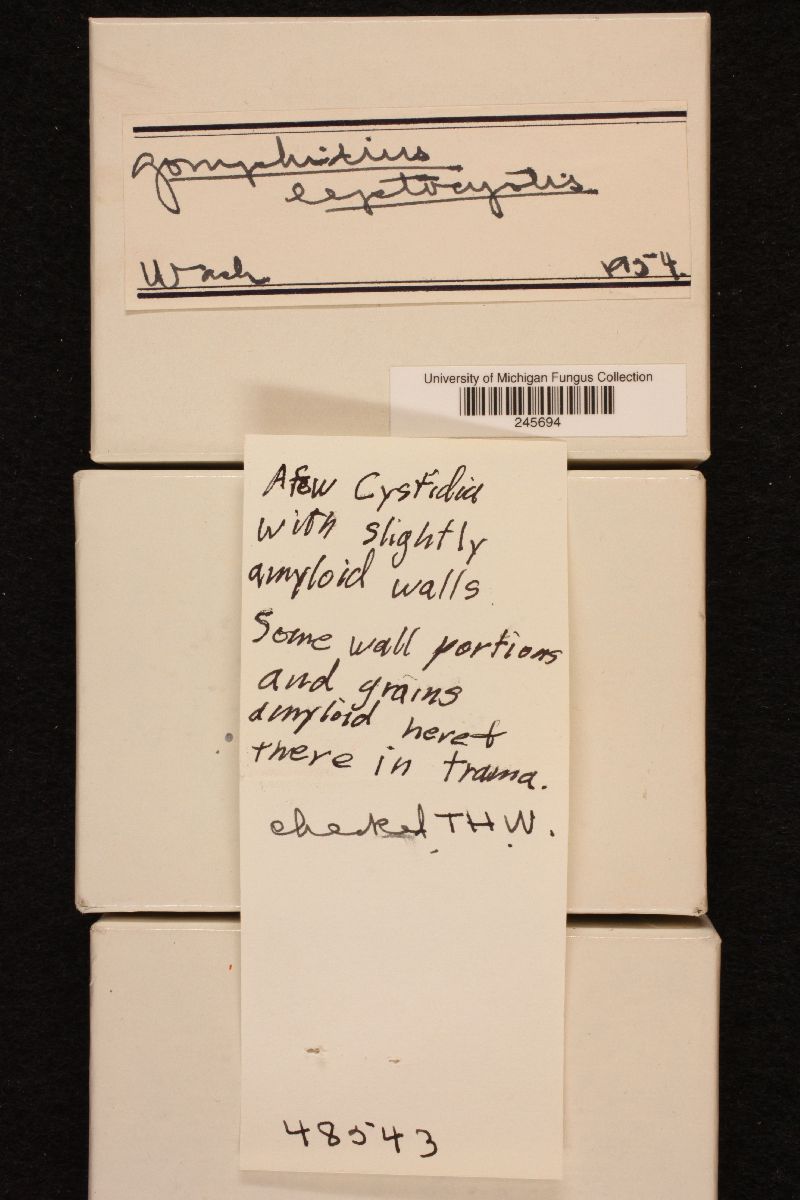 Gomphidius
leptocystis
Wash 1954.
University of Michigan Fungus Collection
245694
A few Cystidia
with slightly
amyloid walls
Some wall portions
and grains
amyloid here &
there in trama.
checked THW.
48543